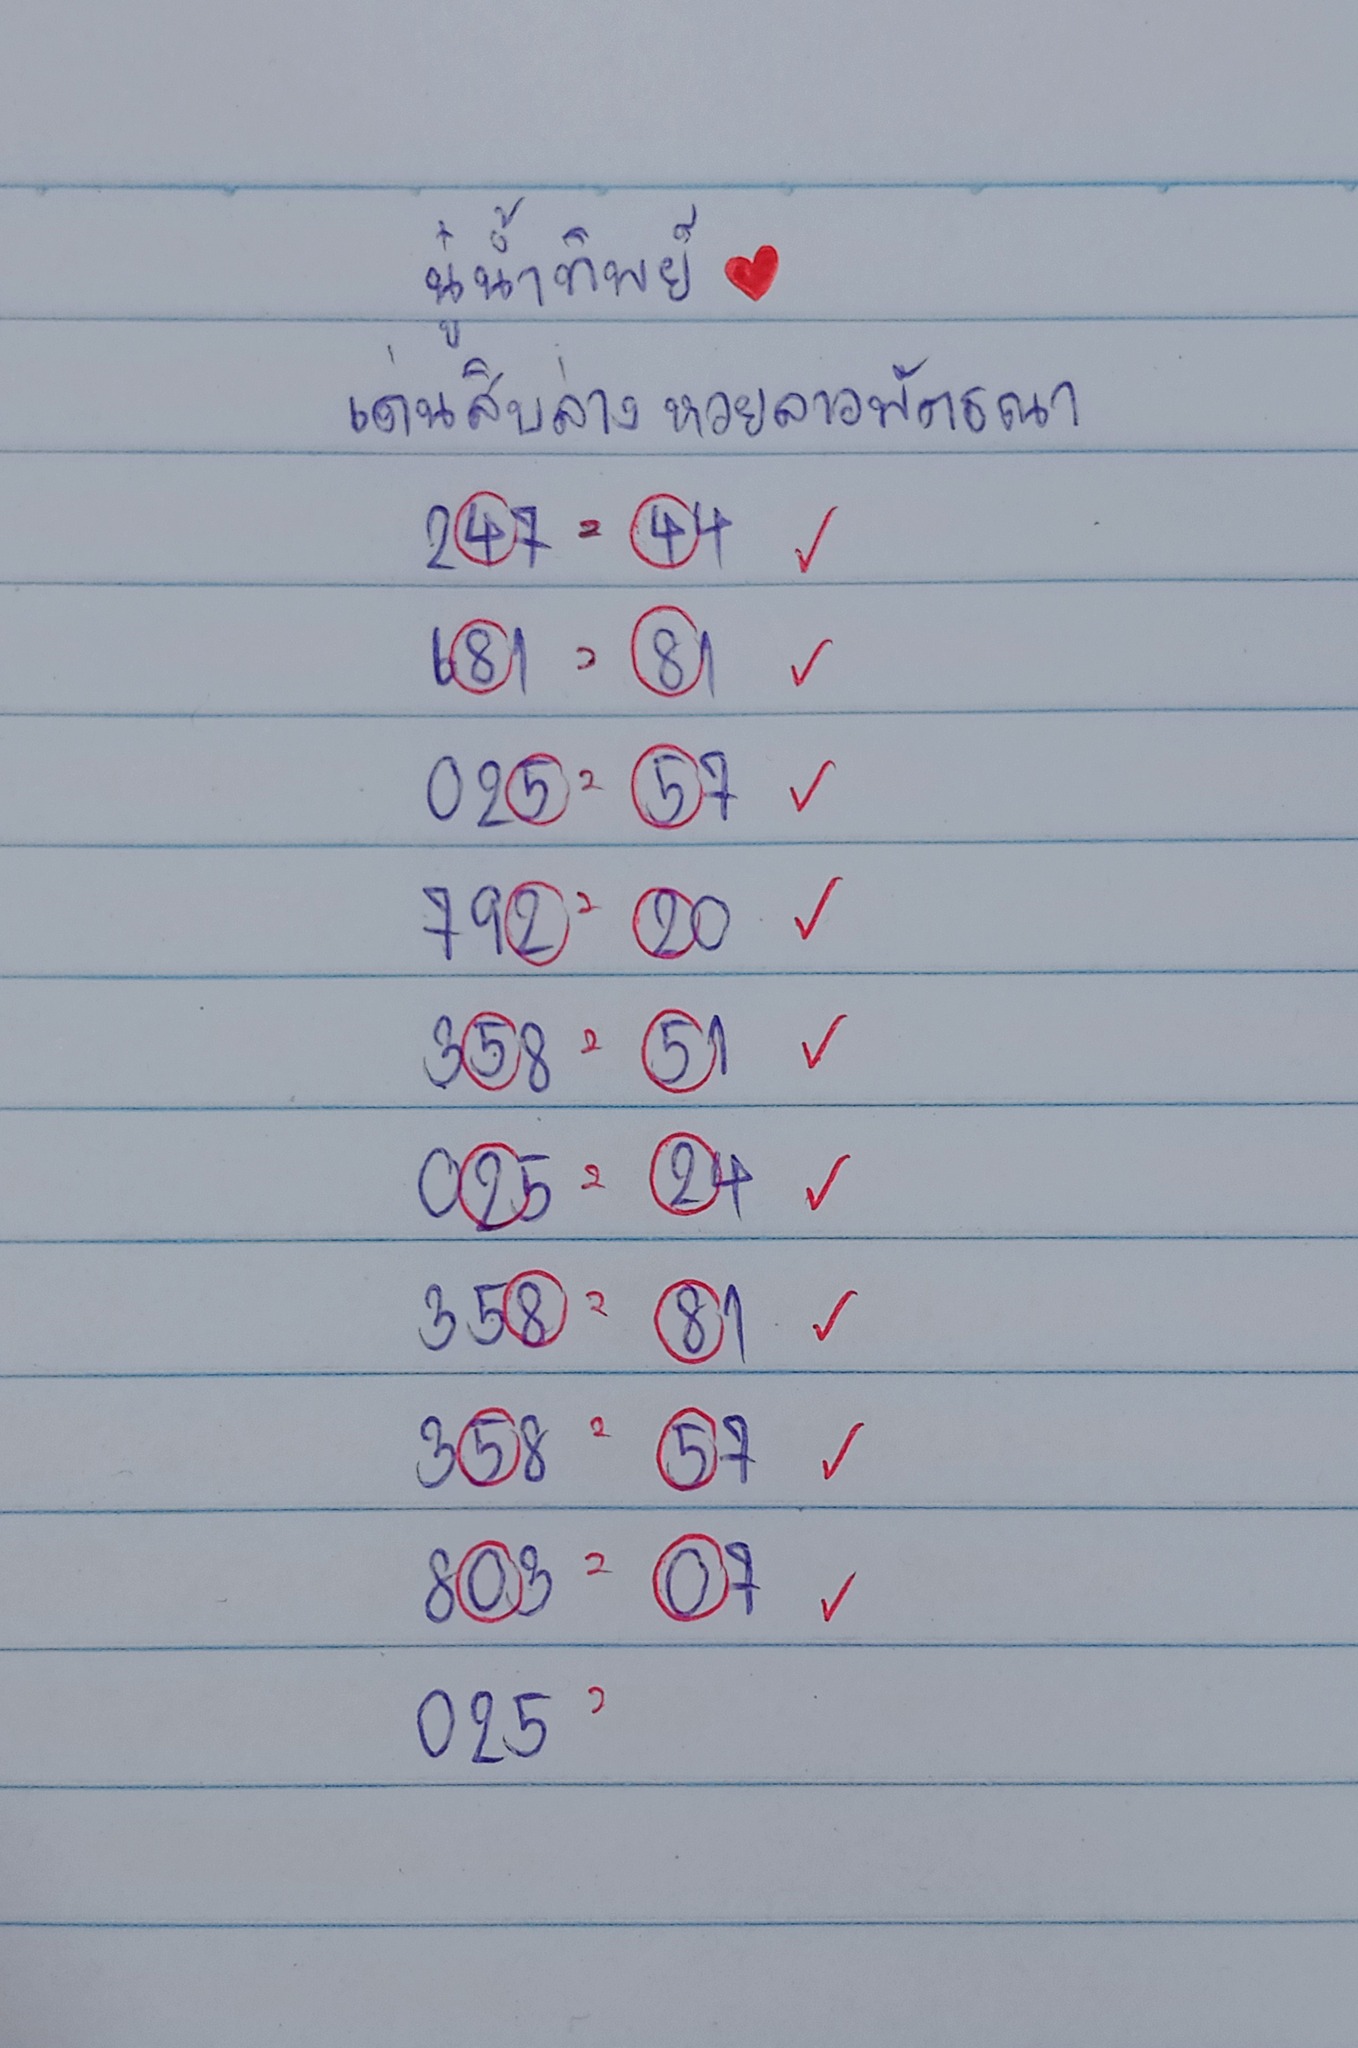 นู๋น้ำทิพย์ ❤
เด่นสิบล่าง หวยลาวพัฒธณา
247 = 44 ✓
681 = 81 ✓
025 = 57 ✓
792 = 20 ✓
358 = 51 ✓
025 = 24 ✓
358 = 81 ✓
358 = 57 ✓
803 = 07 ✓
025 =